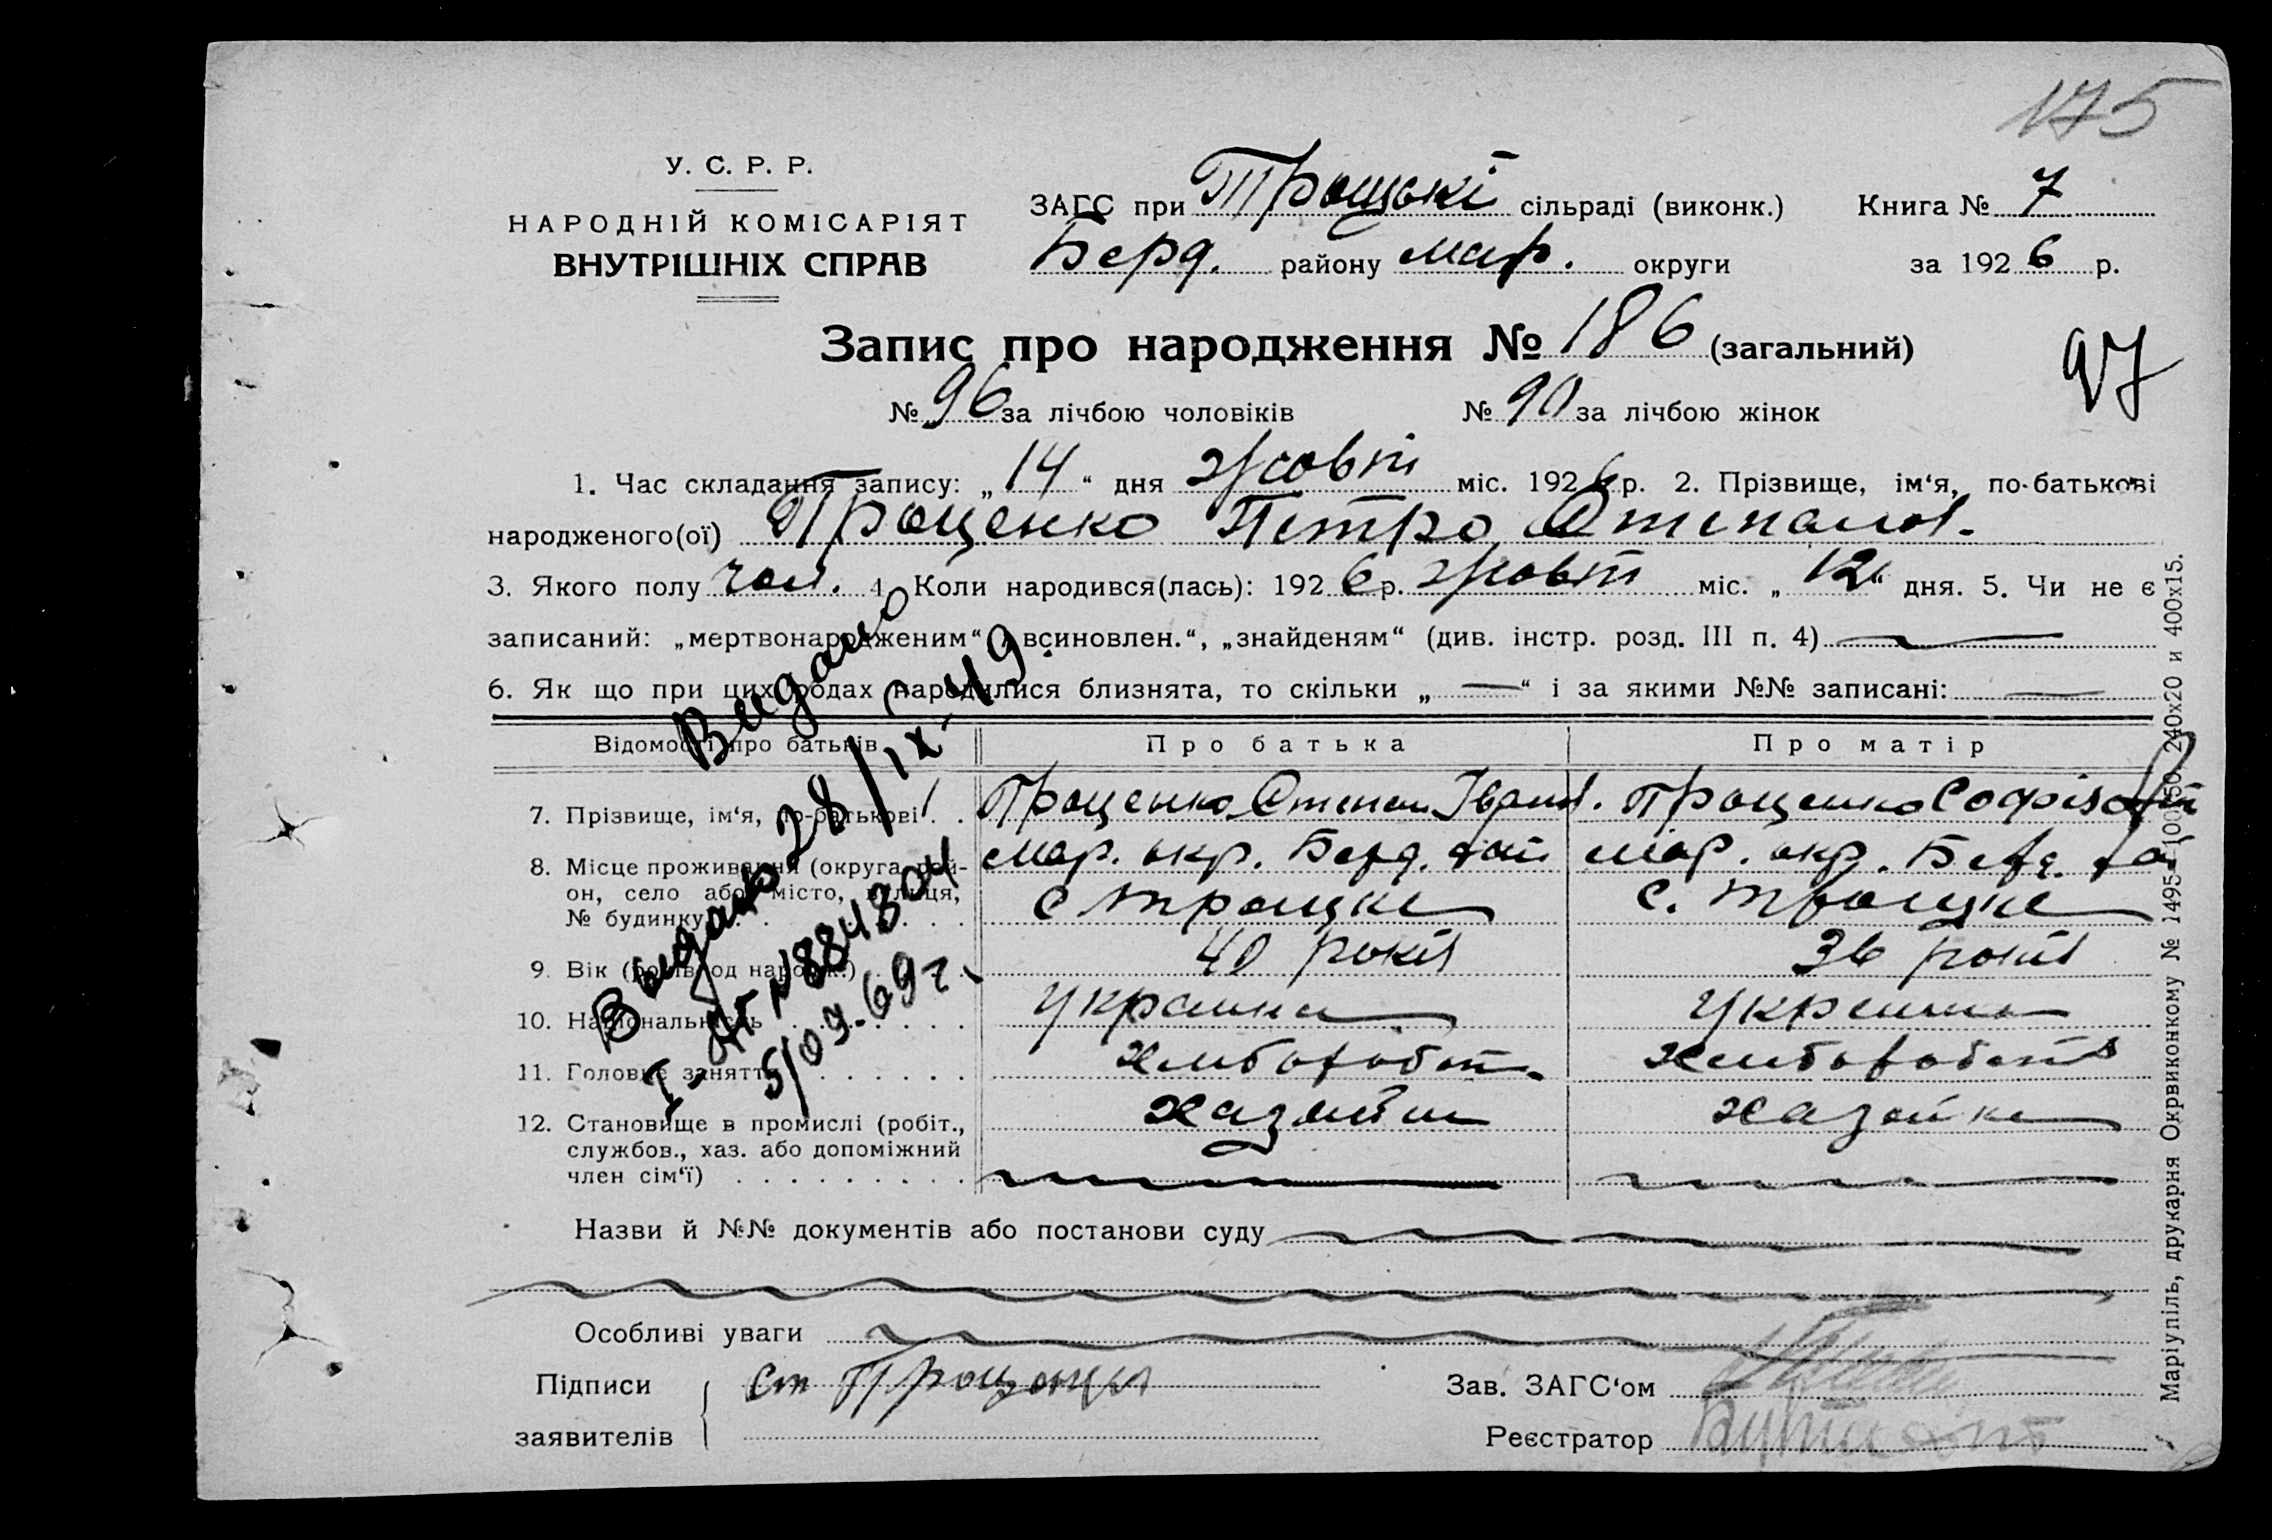 175
У. С. Р. Р.
НАРОДНІЙ КОМІСАРІЯТ
ВНУТРІШНІХ СПРАВ
ЗАГС при Троцькі сільраді (виконк.) Книга № 7
Берд. району Мар. округи за 1926 р.
Запис про народження № 186 (загальний)
97
№ 96 за лічбою чоловіків № 90 за лічбою жінок
1. Час складання запису: „14“ дня Жовт міс. 1926 р. 2. Прізвище, ім‘я, по-батькові
народженого(ої) Проценко Петро Степанов.
3. Якого полу чол. 4. Коли народився(лась): 1926 р. жовт міс. „12“ дня. 5. Чи не є
записаний: „мертвонародженим“, „всиновлен.“, „знайденям“ (див. інстр. розд. III п. 4)
6. Як що при цих родах народилися близнята, то скільки „—“ і за якими №№ записані: —
Відомості про батьків Про батька Про матір
7. Прізвище, ім‘я, по-батькові . . Проценко Степан Іванов. Проценко Софія
8. Місце проживання (округа, рай- Мар. окр. Берд. рай Мар. окр. Берд. ра
он, село або місто, вулиця, с Троцке с. Троцке
№ будинку) . . . .
9. Вік (років од народж.) 40 років 36 років
10. Національність . . . . . . . . українец украинка
11. Головне заняття . . . . . . . хлибороб хлибороб
12. Становище в промислі (робіт., хазяїн хазяйка
службов., хаз. або допоміжний
член сім‘ї) . . . . . . . . .
Видано
28/IX-49
Видано
I-АГ №884804
5/09-69г.
Назви й №№ документів або постанови суду
Особливі уваги
Підписи Ст Проценко Зав. ЗАГС‘ом
заявителів Реєстратор
Маріупіль, друкарня Окрвиконкому № 1495—100×50. 240x20 и 400x15.